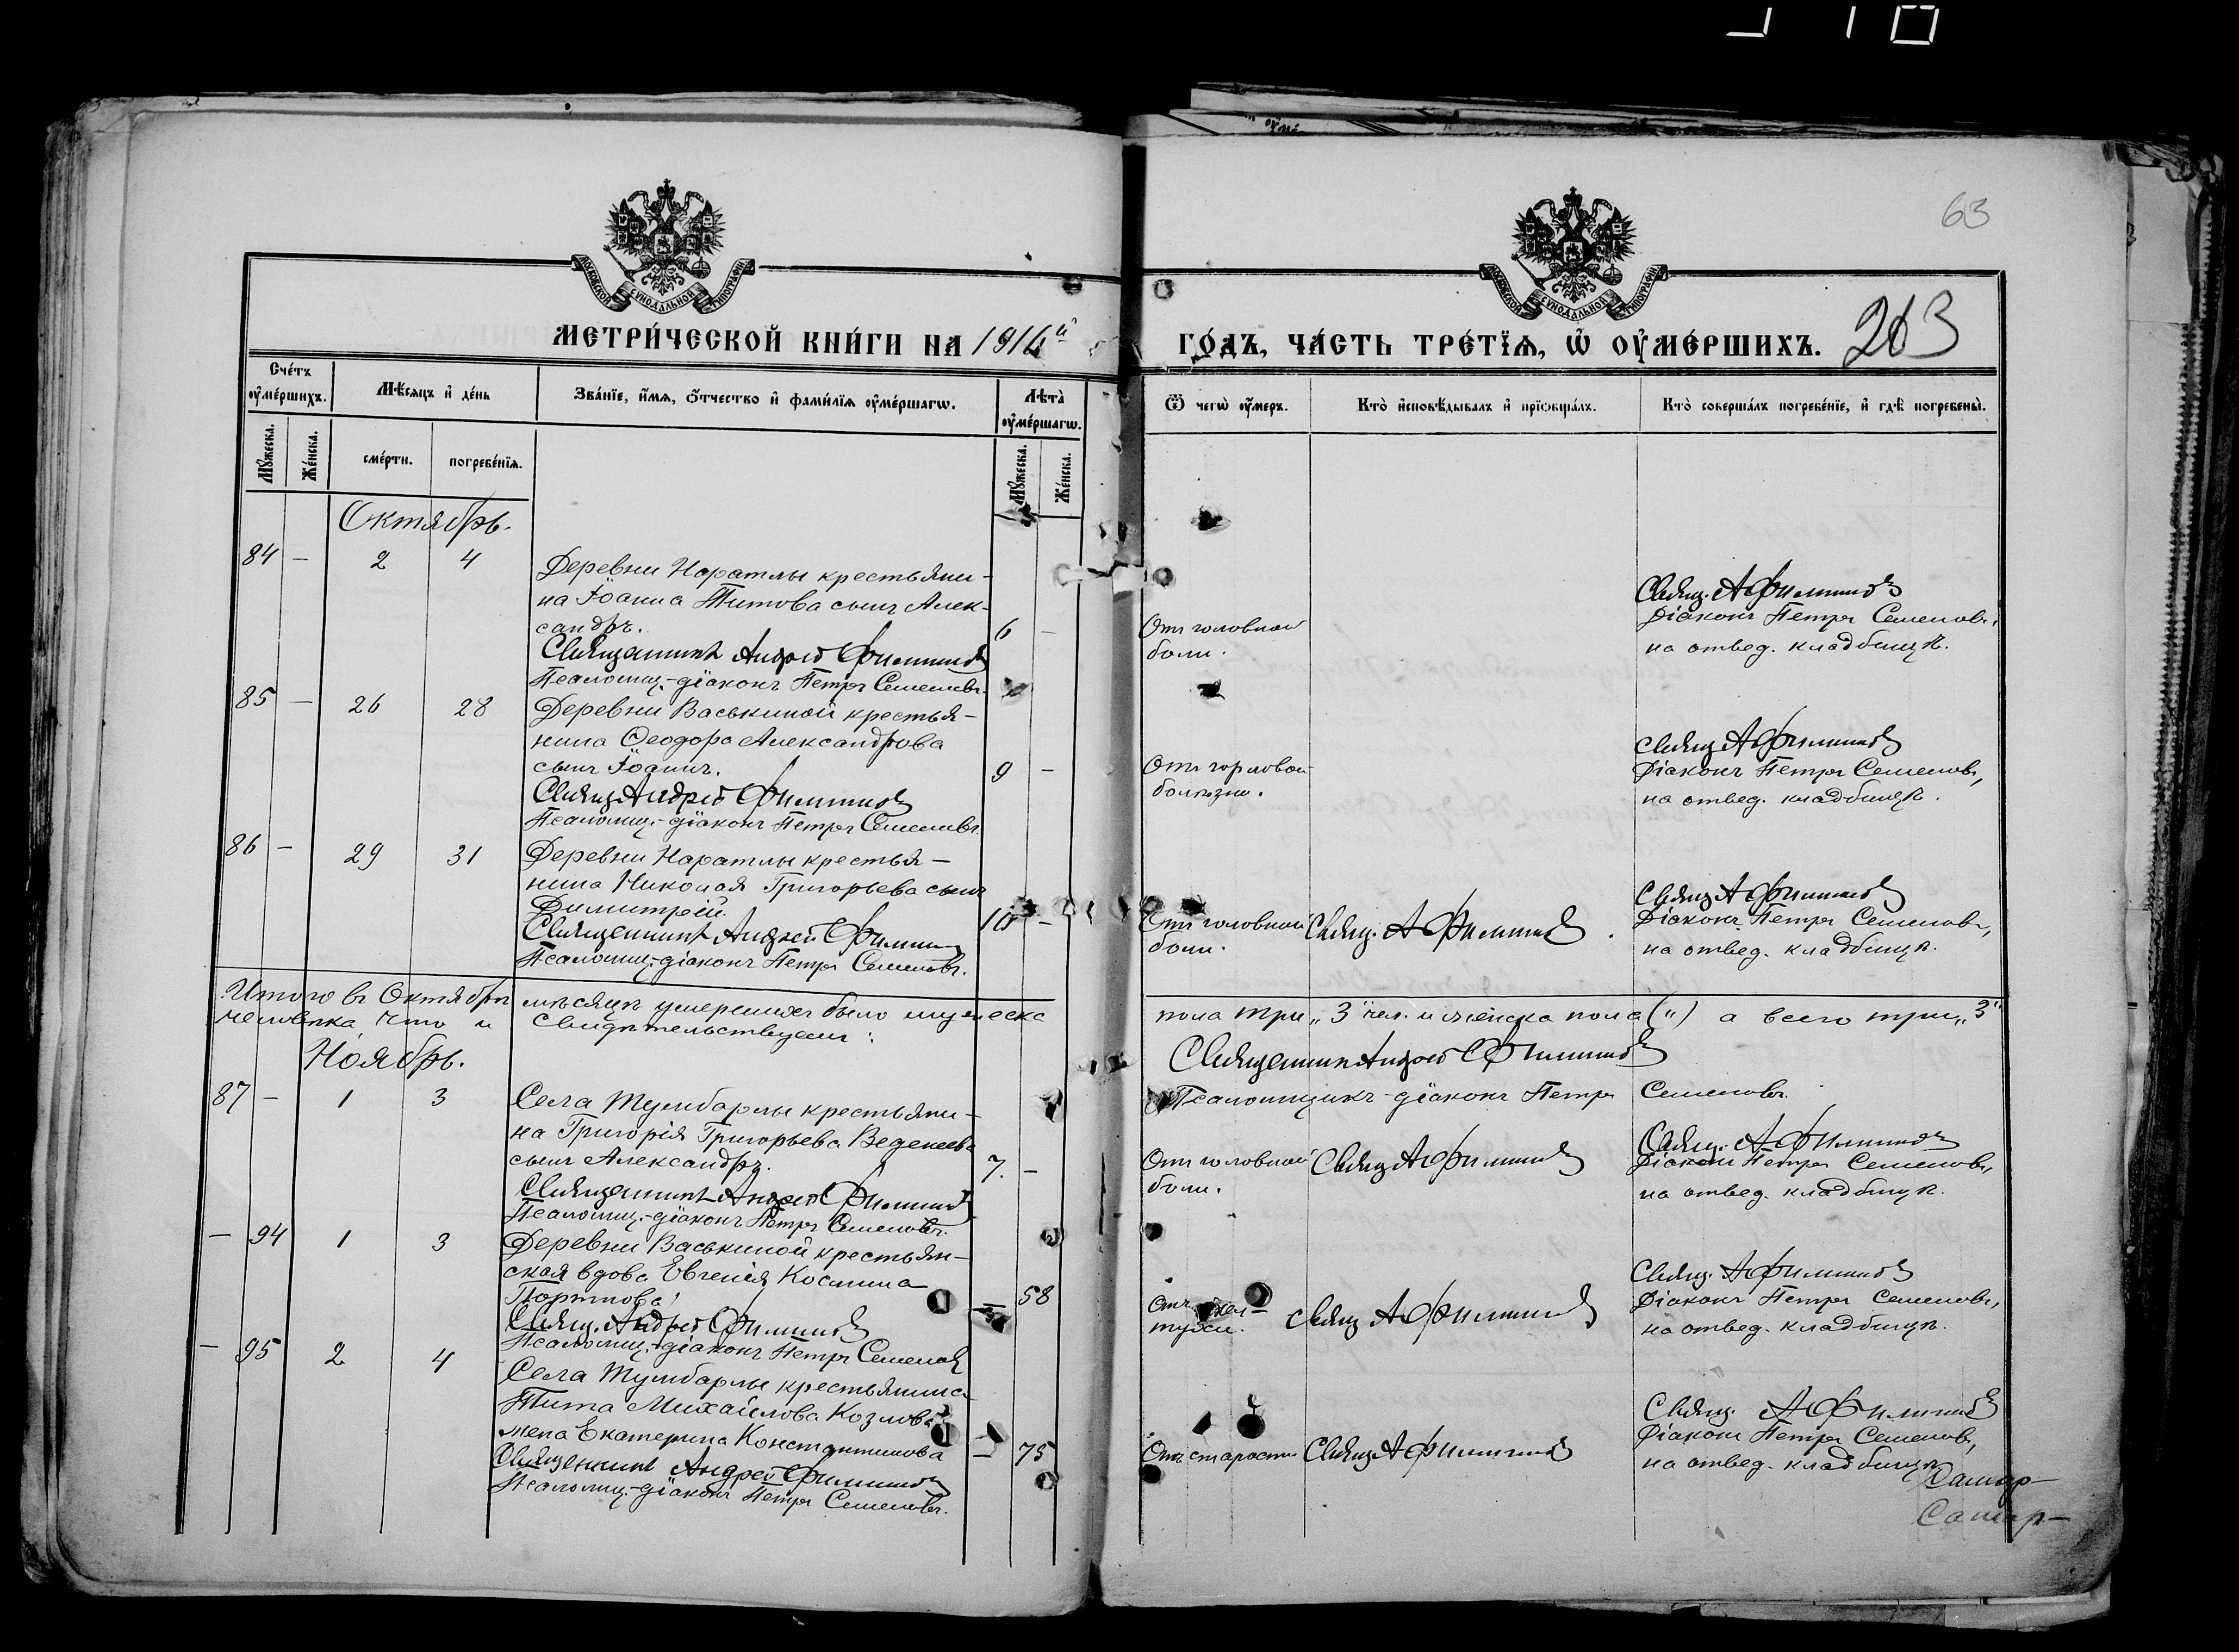 63
МОСКОВСКОЙ СѴНОДАЛЬНОЙ ТИПОГРАФІИ
МОСКОВСКОЙ СѴНОДАЛЬНОЙ ТИПОГРАФІИ
МЕТРИ́ЧЕСКОЙ КНИ́ГИ НА 1916й
ГО́ДЪ, ЧА́СТЬ ТРЕ́ТЇѦ, Ѡ҆ ОУ҆МЕ́РШИХЪ. 203
Сче́тъ оу҆ме́ршихъ.
Мѣ́сяцъ и҆ де́нь
Зва́нїе, и҆́мѧ, ѻ҆́тчество и҆ фами́лїѧ оу҆ме́ршагѡ.
Лѣ́та оу҆ме́ршагѡ.
Ѿ чегѡ̀ оу҆́меръ.
Кто̀ и҆сповѣ́дывалъ и҆ прїѡбща́лъ.
Кто̀ соверша́лъ погребе́нїе, и҆ гдѣ̀ погребены̀.
Мꙋ́жеска.
Же́нска.
сме́рти.
погребе́нїѧ.
Мꙋ́жеска.
Же́нска.
Октябрь.
84 – 2 4 Деревни Наратлы крестьяни-
на Іоанна Титова сынъ Алек-
сандръ. 6 –
Священникъ Андрей Филиппов
Псаломщ.-діаконъ Петръ Семеновъ.
Отъ головной
боли.
Свящ. А Филиппов
Діаконъ Петръ Семеновъ,
на отвед. кладбищѣ.
85 – 26 28 Деревни Васькиной крестья-
нина Ѳеодора Александрова
сынъ Іоаннъ. 9 –
Свящ Андрей Филиппов
Псаломщ.-діаконъ Петръ Семеновъ.
Отъ горловой
болѣзни.
Свящ А Филиппов
Діаконъ Петръ Семеновъ,
на отвед. кладбищѣ.
86 – 29 31 Деревни Наратлы крестья-
нина Николая Григорьева сынъ
Димитрій. 10 –
Священникъ Андрей Филиппов
Псаломщ.-діаконъ Петръ Семеновъ.
Отъ головной
боли.
Свящ. А Филиппов.
Свящ А Филиппов
Діаконъ Петръ Семеновъ,
на отвед. кладбищѣ.
Итого въ Октябрѣ мѣсяцѣ умершихъ было мужеска пола три „3" чел. и женска пола („) а всего три „3"
человѣка, что и свидѣтельствуемъ:
Священникъ Андрей Филиппов
Псаломщикъ-діаконъ Петръ Семеновъ.
Ноябрь.
87 – 1 3 Села Тумбарлы крестьяни-
на Григорія Григорьева Веденеева
сынъ Александръ. 7. –
Священникъ Андрей Филиппов
Псаломщ.-діаконъ Петръ Семеновъ.
Отъ головной
боли.
Свящ А Филиппов
Свящ. А Филиппов
Діаконъ Петръ Семеновъ,
на отвед. кладбищѣ.
– 94 1 3 Деревни Васькиной крестьян-
ская вдова Евгенія Космина
Портнова – 58
Свящ. Андрей Филиппов
Псаломщ.-діаконъ Петръ Семеновъ
Отъ
Свящ А Филиппов
Свящ. А Филиппов
Діаконъ Петръ Семеновъ,
на отвед. кладбищѣ.
– 95 2 4 Села Тумбарлы крестьянина
Тита Михайлова Козлова
жена Екатерина Константинова – 75
Священникъ Андрей Филиппов
Псаломщ.-діаконъ Петръ Семеновъ.
Отъ старости
Свящ А Филиппов
Свящ. А Филиппов
Діаконъ Петръ Семеновъ,
на отвед. кладбищѣ.
Самар-
Самар-